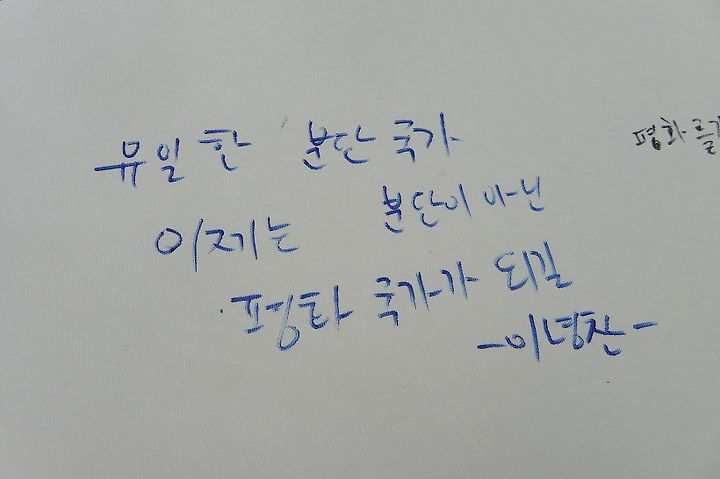 유일한 분단 국가
이제는 분단이 아닌
평화 국가가 되길
-이녕찬-
평화를